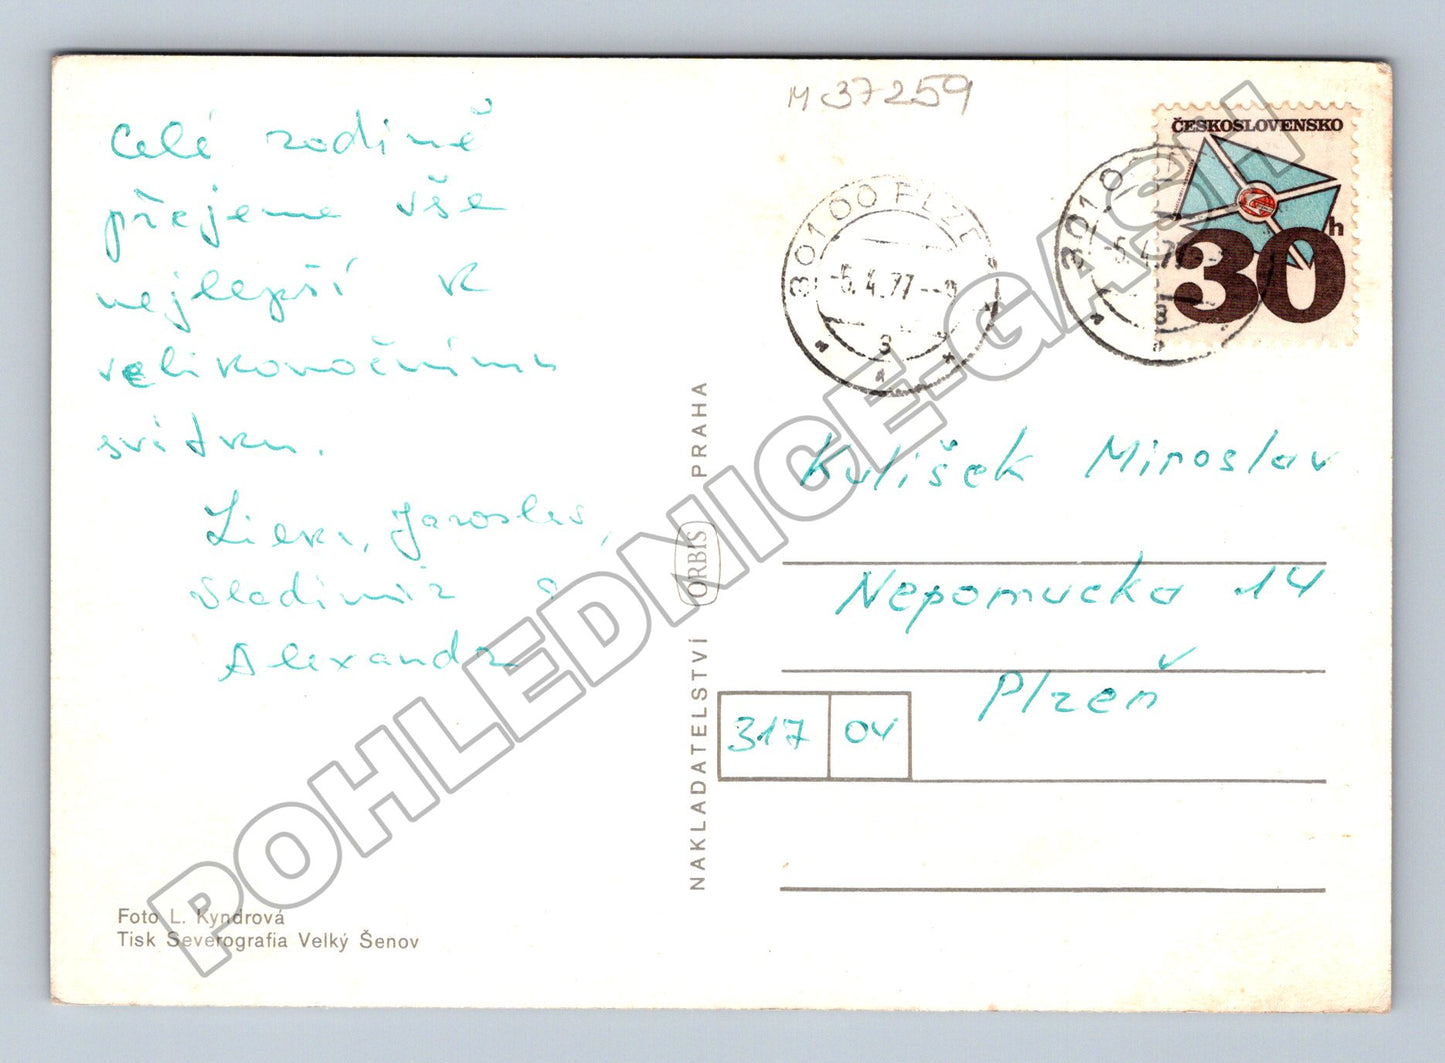 M 37259
Celé rodině
přejeme vše
nejlepší k
velikonočnímu
svátku.
Jaroslav,
Vladimír a
Alexandr
ČESKOSLOVENSKO
30 h
301 00 PLZE
-5.4.77--
3
301 0
-5.4.77--
3
Kulíšek Miroslav
Nepomucka 14
Plzeň
317 04
NAKLADATELSTVÍ ORBIS PRAHA
Foto L. Kyndrová
Tisk Severografia Velký Šenov
POHLEDNICE-GASH